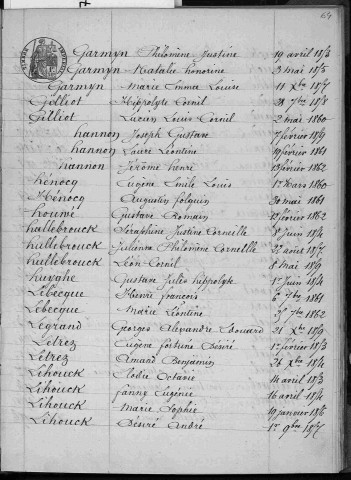 64
Garmyn Philomène Justine 19 avril 1873
Garmyn Natalie honorine 3 mai 1875
Garmyn Marie Emma Louise 11 Xbre 1877
Gilliot Hippolyte Cornil 31 7bre 1858
Gilliot Lucien Louis Cornil 2 mai 1860
hannon Joseph Gustave 7 février 1859
hannon Laure Léontine 19 février 1861
hannon Jérôme henri 13 février 1862
hénocq Eugène Emile Louis 1er Mars 1860
Hénocq Augustin folquin 30 mai 1861
houwé Gustave Romain 12 février 1862
hullebrouck Séraphine Justine Corneille 8 Juin 1874
hullebrouck Julienne Philomène Corneille 22 août 1877
hullebrouck Léon Cornil 8 mai 1879
huyghe Gustave Jules hippolyte 1er Juin 1874
Lebecque Henri françois 6 7bre 1861
Lebecque Marie Léontine 1862
Legrand Georges Alexandre Edouard 21 Xbre 1879
Létrez Eugène fortuné Désiré 1er février 1873
Létrez Amand Benjamin 24 Xbre 1874
Lihouck Elodie Octavie 14 avril 1873
Lihouck fanny Eugénie 16 avril 1874
Lihouck Marie Sophie 19 janvier 1876
Lihouck Désiré André 1er 9bre 1877